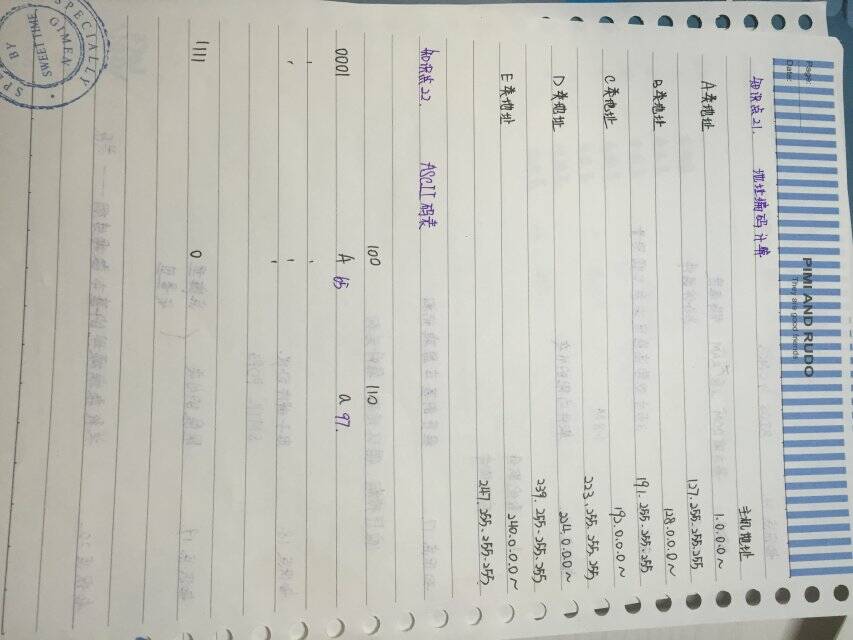 Page:
Date:
PIMI AND RUDO
They are good friends
知识点21. 地址编码计算
主机地址
A类地址 1.0.0.0~
127.255.255.255
B类地址 128.0.0.0~
191.255.255.255
C类地址 192.0.0.0~
223.255.255.255
D类地址 224.0.0.0~
239.255.255.255
E类地址 240.0.0.0~
247.255.255.255
知识点22. ASCII码表
100 110
0001 A 65 a 97.
1111 O
SPECIALLY
GIMEN
SWEETTIME
BY